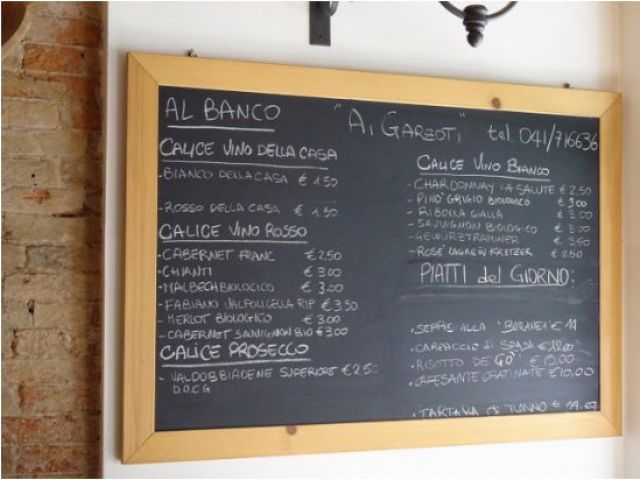 AL BANCO
"Ai GARZOTI" tel. 041/716636
CALICE VINO DELLA CASA
- BIANCO DELLA CASA € 1.50
- ROSSO DELLA CASA € 1.50
CALICE VINO ROSSO
- CABERNET FRANC € 2,50
- CHIANTI € 3.00
- MALBECH BIOLOGICO € 3.00
- FABIANO VALPOLICELLA RIP € 3,50
- MERLOT BIOLOGICO € 3.00
- CABERNET SAUVIGNON BIO € 3.00
CALICE PROSECCO
- VALDOBBIADENE SUPERIORE € 2.50
D.O.C.G
CALICE VINO BIANCO
- CHARDONNAY LA SALUTE € 2,50
- PINO' GRIGIO BIOLOGICO € 3.00
- RIBOLLA GIALLA € 3.00
- SAUVIGNON BIOLOGICO € 3.00
- GEWÜRZTRAMINER € 3,50
- ROSE' LAGREIN KRETZER € 2.50
PIATTI del GIORNO:
- SEPPIE ALLA "BURANEA" €
- CARPACCIO di SPADA €
- RISOTTO DE "GO'" €
- CAPESANTE GRATINATE € 10,00
- TARTARA di TONNO €